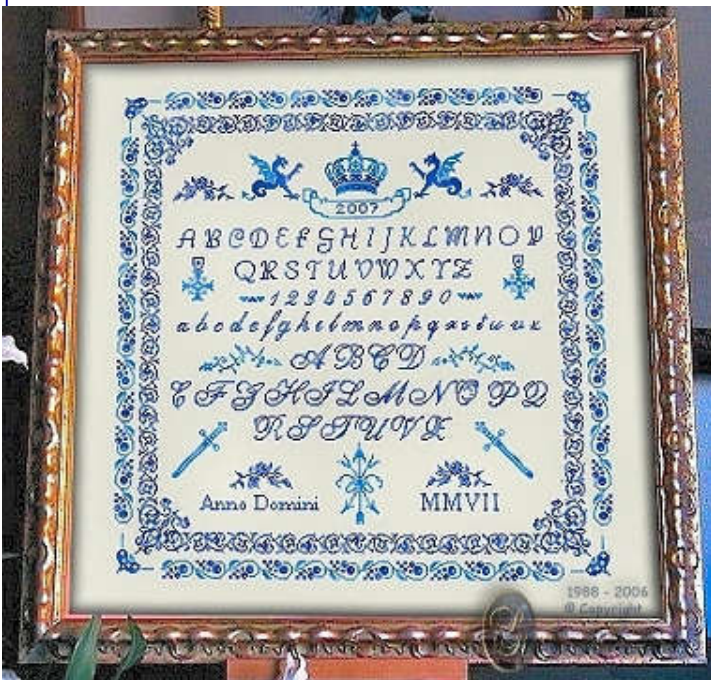 2007
A B C D E F G H I J K L M N O P
Q R S T U V W X Y Z
1 2 3 4 5 6 7 8 9 0
a b c d e f g h i l m n o p q r s t u v x
A B C D
E F G H I L M N O P Q
R S T U V Z
Anno Domini MMVII
1988 - 2006
© Copyright